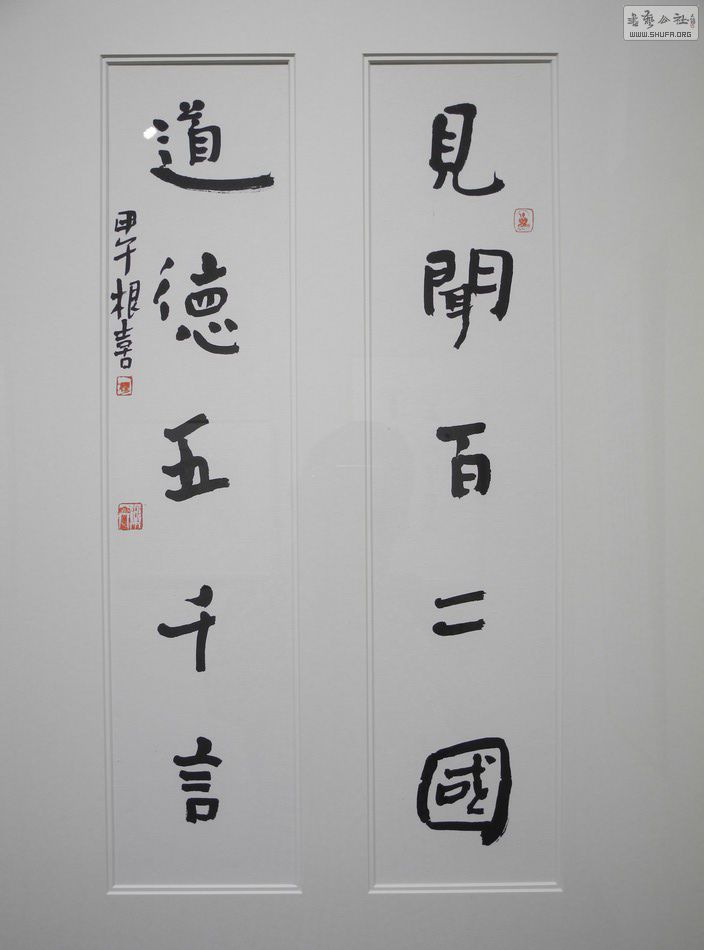 見聞百二國
道德五千言
甲午根喜
書藝公社
WWW.SHUFA.ORG